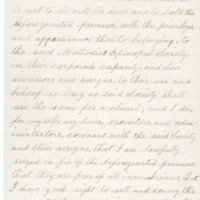 is not to be out. To have and to hold the
beforegranted premises, with the privileges
and appurtenance thereto belonging, to
the said Methodist Episcopal Society,
in their corporate capacity, and their
successors and assigns, to their use and
behoof, so long as said Society shall
use the same for a church; and I do,
for myself, my heirs, executors, and adm-
inistrators, covenant with the said Society
and their assigns, that I am lawfully
seized in fee of the beforegranted premises;
that they are free of all incumbrances; that
I have good right to sell and convey the